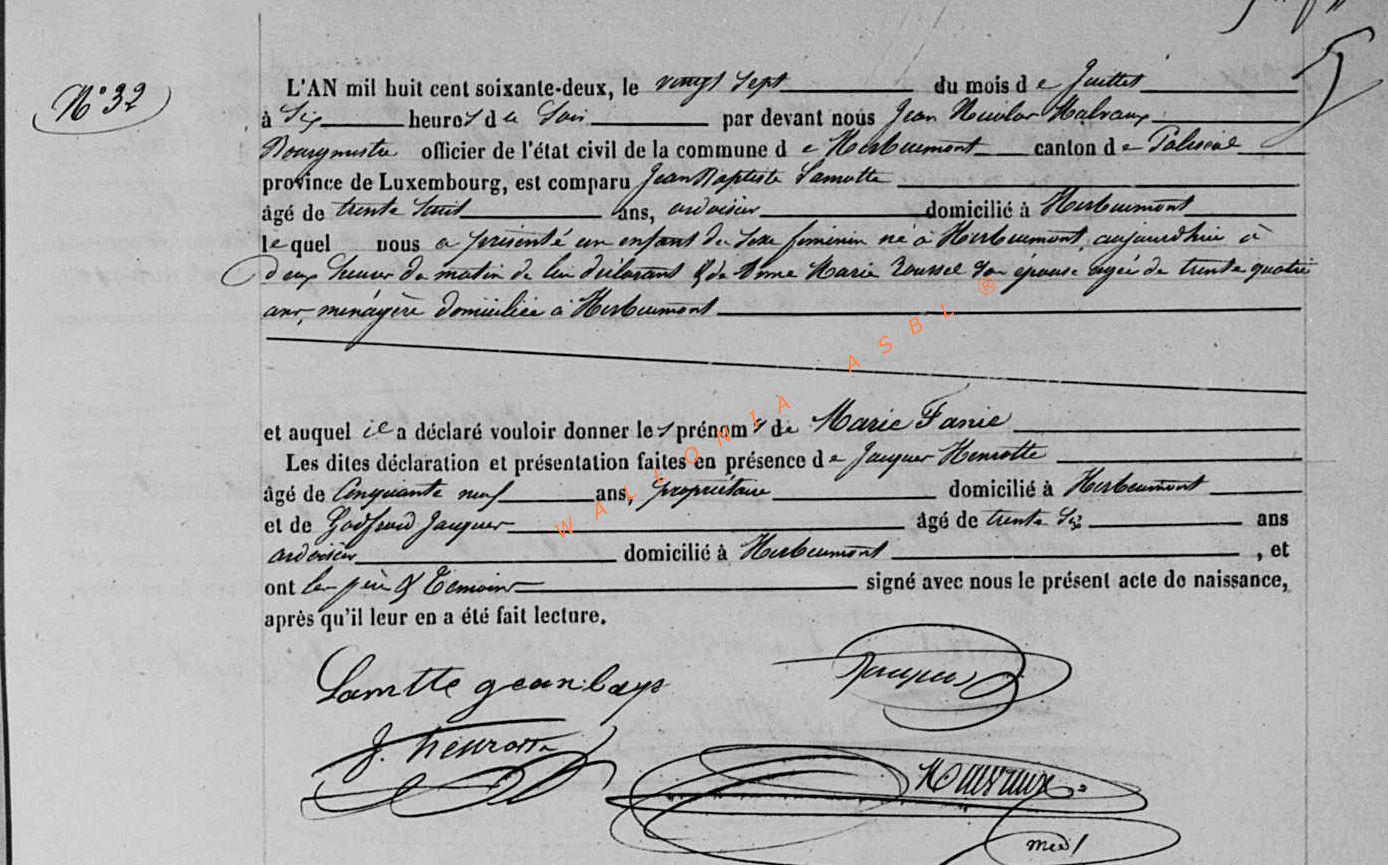 N° 32
L'AN mil huit cent soixante-deux, le vingt sept du mois de Juillet
à Six heures du Soir par devant nous Jean Nicolas Malvaux
Bourgmestre officier de l'état civil de la commune de Herbeumont canton de Paliseul
province de Luxembourg, est comparu Jean Baptiste Lamotte
âgé de trente ans, ardoisier domicilié à Herbeumont
lequel nous a présenté un enfant du Sexe féminin né à Herbeumont, aujourd'hui à
deux heures du matin de lui déclarant & de Anne Marie Roussel Son épouse agée de trente quatre
ans, ménagère domiciliée à Herbeumont
et auquel il a déclaré vouloir donner les prénoms de Marie Fanie
Les dites déclaration et présentation faites en présence de Jacques Henrotte
âgé de Cinquante neuf ans, propriétaire domicilié à Herbeumont
et de Godfroid Jacques âgé de trente Six ans
ardoisier domicilié à Herbeumont, et
ont les père & Témoins signé avec nous le présent acte de naissance,
après qu'il leur en a été fait lecture.
Lamotte jean bap Jacques
J. henrotte
Malvaux
WALLONIA ASBL ®